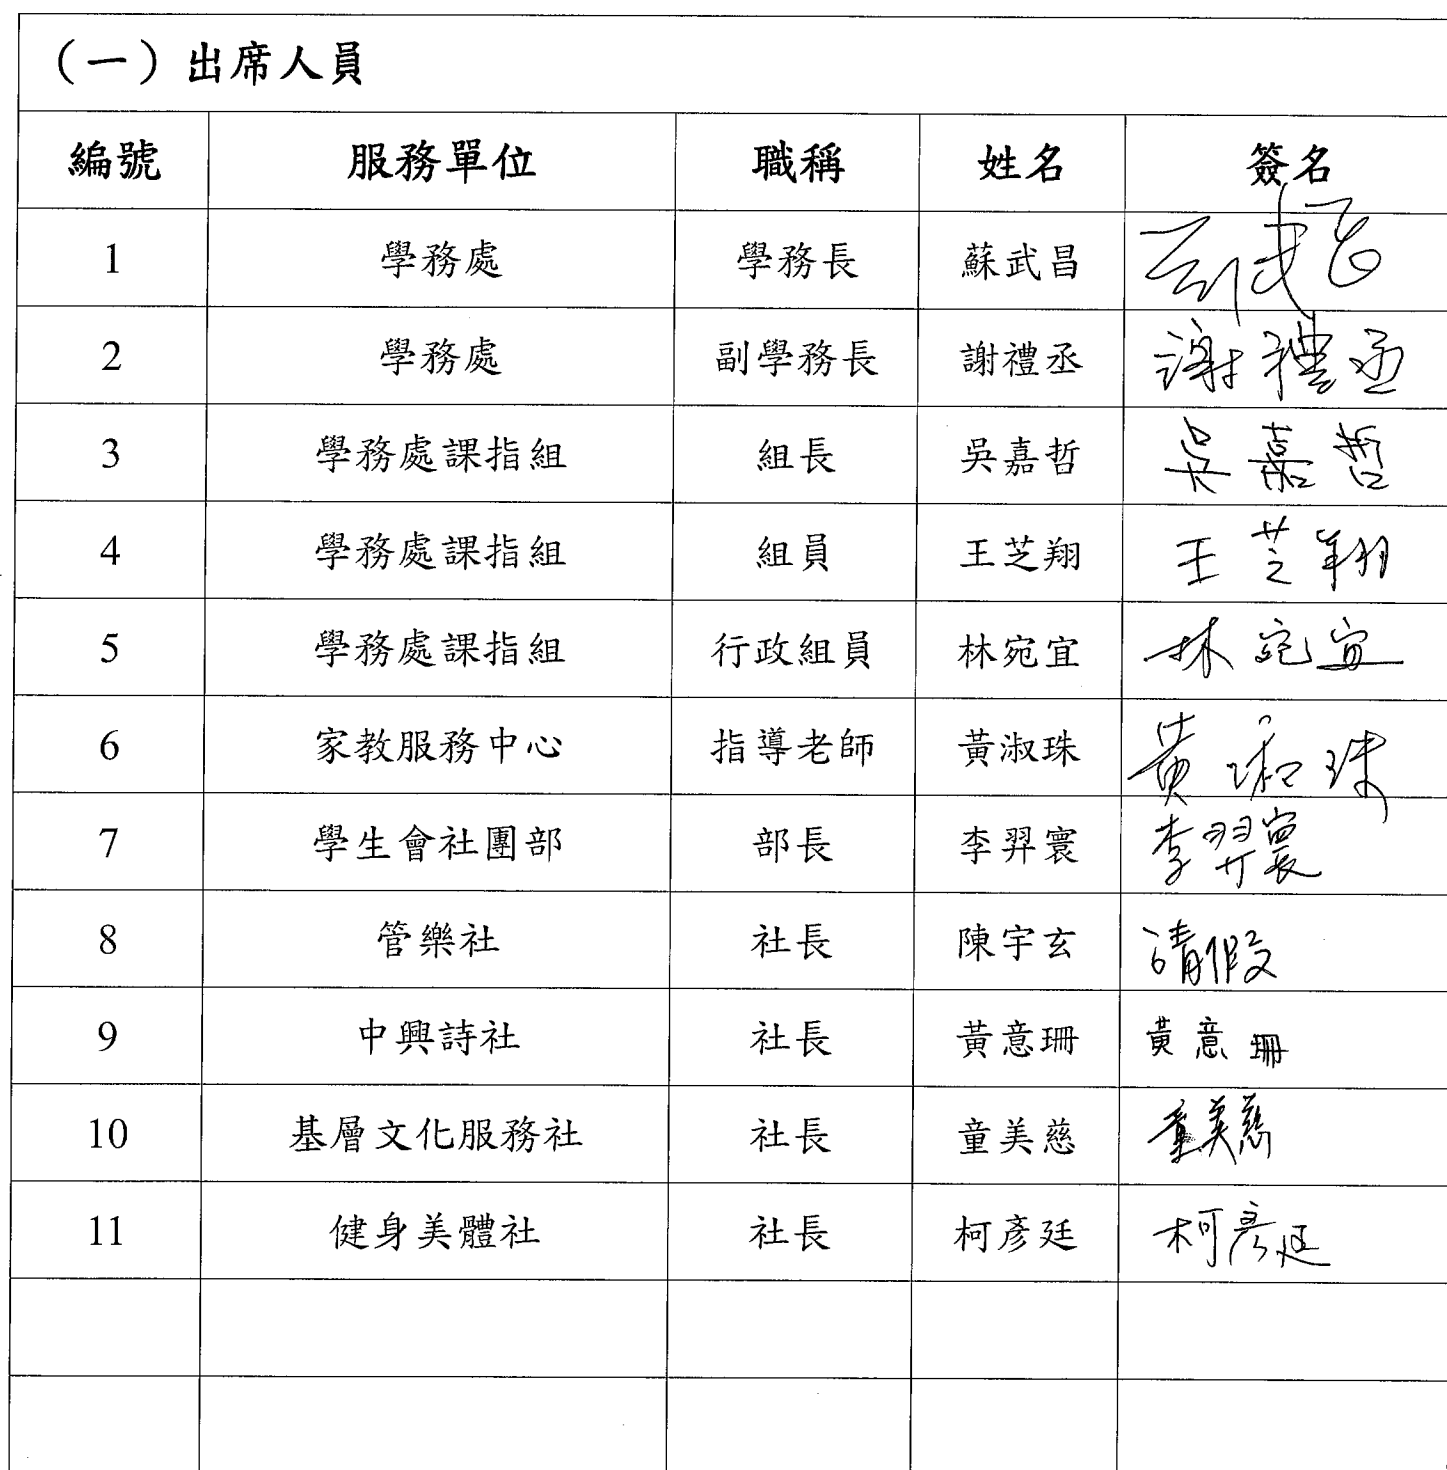 （一）出席人員
編號 服務單位 職稱 姓名 簽名
1 學務處 學務長 蘇武昌
2 學務處 副學務長 謝禮丞 謝禮丞
3 學務處課指組 組長 吳嘉哲 吳嘉哲
4 學務處課指組 組員 王芝翔 王芝翔
5 學務處課指組 行政組員 林宛宜 林宛宜
6 家教服務中心 指導老師 黃淑珠 黃淑珠
7 學生會社團部 部長 李羿寰 李羿寰
8 管樂社 社長 陳宇玄 請假
9 中興詩社 社長 黃意珊 黃意珊
10 基層文化服務社 社長 童美慈 童美慈
11 健身美體社 社長 柯彥廷 柯彥廷